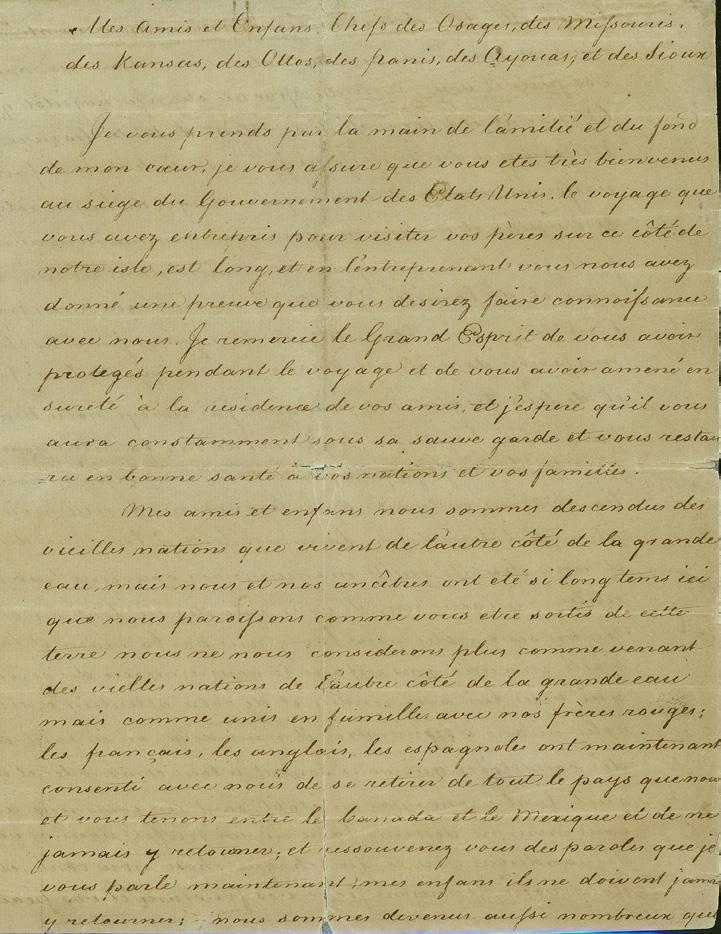 Mes Amis et Enfans, Chefs des Osages, des Missouris,
des Kansas, des Ottos, des panis, des Ayouas, et des Sioux
Je vous prends par la main de l'amitié et du fond
de mon cœur, je vous assure que vous etes très bienvenus
au siege du Gouvernement des Etats Unis. le voyage que
vous avez entrepris pour visiter vos pères sur ce côté de
notre isle, est long, et en l'entreprenant vous nous avez
donné une preuve que vous desirez faire connoissance
avec nous. Je remercie le Grand Esprit de vous avoir
protegés pendant le voyage et de vous avoir amené en
sureté à la residence de vos amis, et j'espere qu'il vous
aura constamment sous sa sauve garde et vous restau
=ra en bonne santé à vos nations et vos familles.
Mes amis et enfans nous sommes descendus des
vieilles nations que vivent de l'autre côté de la grande
eau, mais nous et nos ancêtres ont eté si long tems ici
que nous paroissons comme vous etre sortis de cette
terre nous ne nous considerons plus comme venant
des vielles nations de l'autre côté de la grande eau
mais comme unis en famille avec nos frères rouges;
les français, les anglois, les espagnols ont maintenant
consenti avec nous de se retirer de tout le pays que nous
et vous tenons entre le Canada et le Mexique et de ne
jamais y retourner; et ressouvenez vous des paroles que je
vous parle maintenant, mes enfans ils ne doivent jamais
y retourner; nous sommes devenus aussi nombreux que